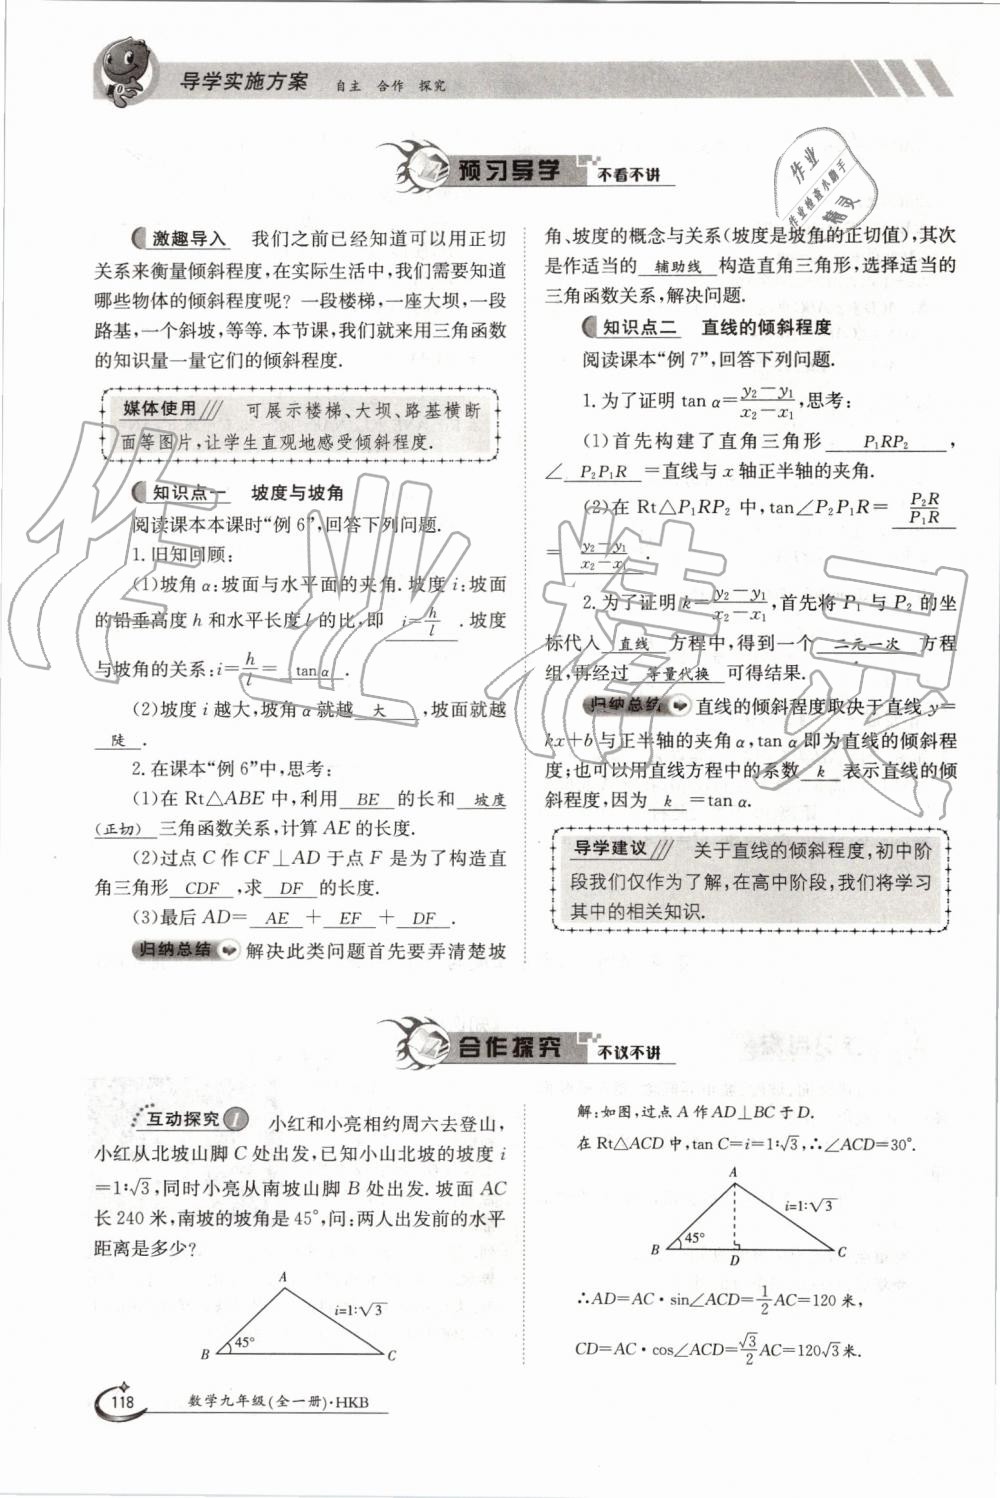 导学实施方案 自主 合作 探究
预习导学 不看不讲
作业
作业检查小助手
精灵
激趣导入 我们之前已经知道可以用正切
关系来衡量倾斜程度,在实际生活中,我们需要知道
哪些物体的倾斜程度呢? 一段楼梯,一座大坝,一段
路基,一个斜坡,等等. 本节课,我们就来用三角函数
的知识量一量它们的倾斜程度.
媒体使用 可展示楼梯、大坝、路基横断
面等图片,让学生直观地感受倾斜程度.
知识点一 坡度与坡角
阅读课本本课时“例 6”,回答下列问题.
1. 旧知回顾:
(1)坡角 α:坡面与水平面的夹角. 坡度 i:坡面
的铅垂高度 h 和水平长度 l 的比,即 i=h/l . 坡度
与坡角的关系:i=h/l= tan α .
(2)坡度 i 越大,坡角 α 就越 大 ,坡面就越
陡 .
2. 在课本“例 6”中,思考:
(1)在 Rt△ABE 中,利用 BE 的长和 坡度
(正切) 三角函数关系,计算 AE 的长度.
(2)过点 C 作 CF⊥AD 于点 F 是为了构造直
角三角形 CDF ,求 DF 的长度.
(3)最后 AD= AE + EF + DF .
归纳总结 解决此类问题首先要弄清楚坡
角、坡度的概念与关系(坡度是坡角的正切值),其次
是作适当的 辅助线 构造直角三角形,选择适当的
三角函数关系,解决问题.
知识点二 直线的倾斜程度
阅读课本“例 7”,回答下列问题.
1. 为了证明 tan α=y₂-y₁/x₂-x₁,思考:
(1)首先构建了直角三角形 P₁RP₂ ,
∠ P₂P₁R =直线与 x 轴正半轴的夹角.
(2)在 Rt△P₁RP₂ 中,tan∠P₂P₁R= P₂R/P₁R
= y₂-y₁/x₂-x₁ .
2. 为了证明 k=y₂-y₁/x₂-x₁,首先将 P₁ 与 P₂ 的坐
标代入 直线 方程中,得到一个 二元一次 方程
组,再经过 等量代换 可得结果.
归纳总结 直线的倾斜程度取决于直线 y=
kx+b 与正半轴的夹角 α,tan α 即为直线的倾斜程
度;也可以用直线方程中的系数 k 表示直线的倾
斜程度,因为 k =tan α.
导学建议 关于直线的倾斜程度,初中阶
段我们仅作为了解,在高中阶段,我们将学习
其中的相关知识.
作业精灵
合作探究 不议不讲
互动探究 1 小红和小亮相约周六去登山,
小红从北坡山脚 C 处出发,已知小山北坡的坡度 i
=1∶√3,同时小亮从南坡山脚 B 处出发. 坡面 AC
长 240 米,南坡的坡角是 45°,问:两人出发前的水平
距离是多少?
A
i=1∶√3
45°
B
C
解:如图,过点 A 作 AD⊥BC 于 D.
在 Rt△ACD 中,tan C=i=1∶√3,∴∠ACD=30°.
A
i=1∶√3
45°
B
D
C
∴AD=AC·sin∠ACD=1/2AC=120 米,
CD=AC·cos∠ACD=√3/2AC=120√3米.
118 数学九年级(全一册)·HKB